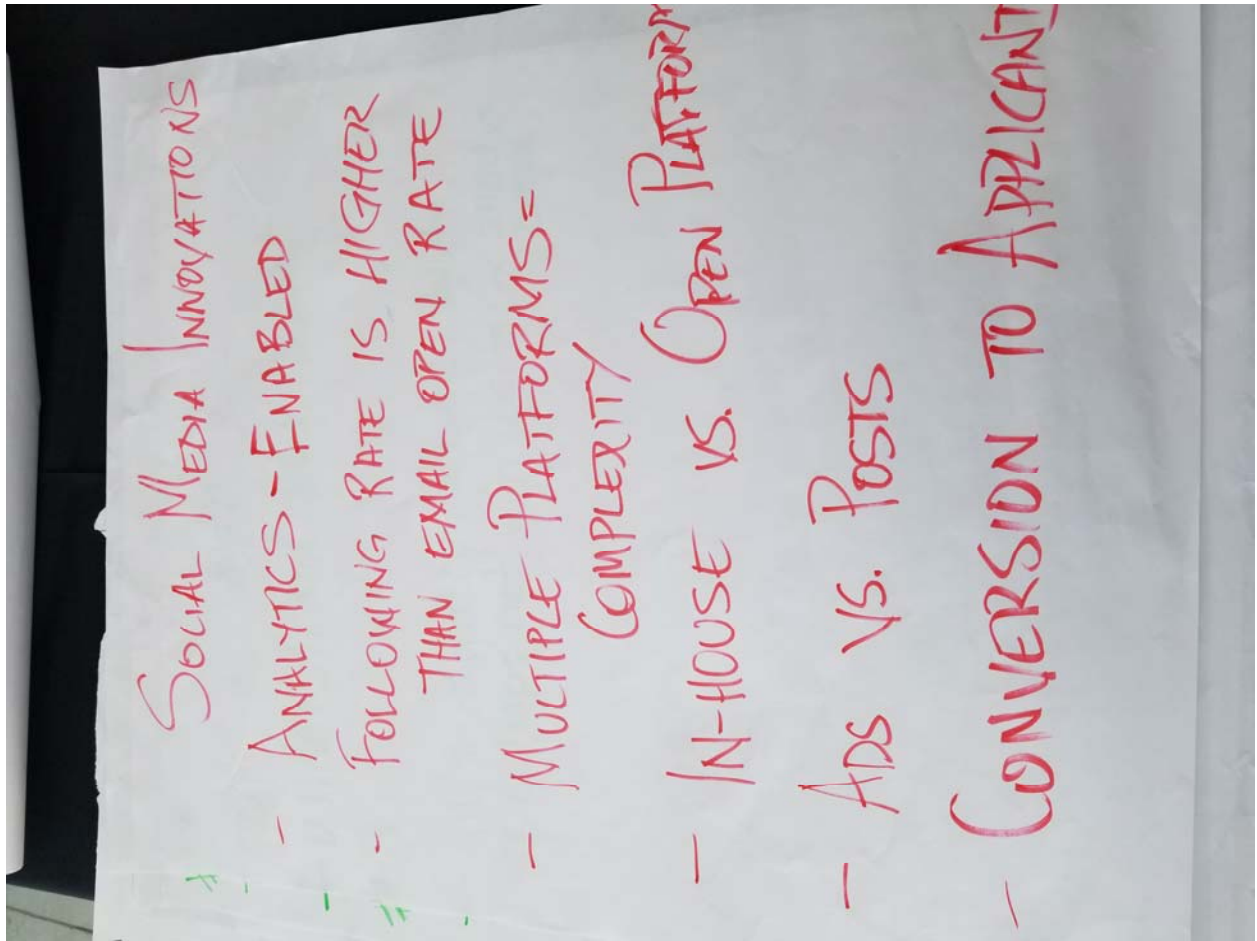 SOCIAL MEDIA INNOVATIONS
- ANALYTICS-ENABLED
- FOLLOWING RATE IS HIGHER
THAN EMAIL OPEN RATE
- MULTIPLE PLATFORMS=
COMPLEXITY
- IN-HOUSE VS. OPEN PLATFORM
- ADS VS. POSTS
- CONVERSION TO APPLICANT